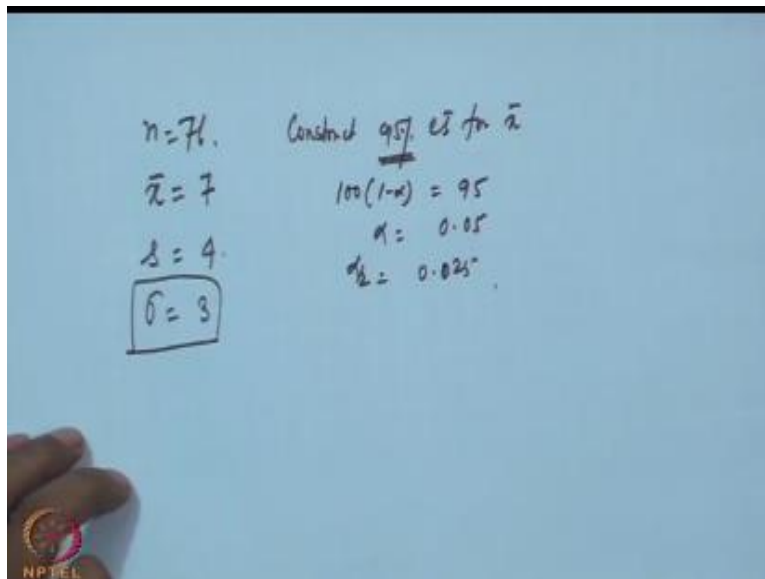 n = 71.
x̄ = 7
s = 4.
σ = 3
Construct 95% CI for x̄
100(1-α) = 95
α = 0.05
α/2 = 0.025
NPTEL